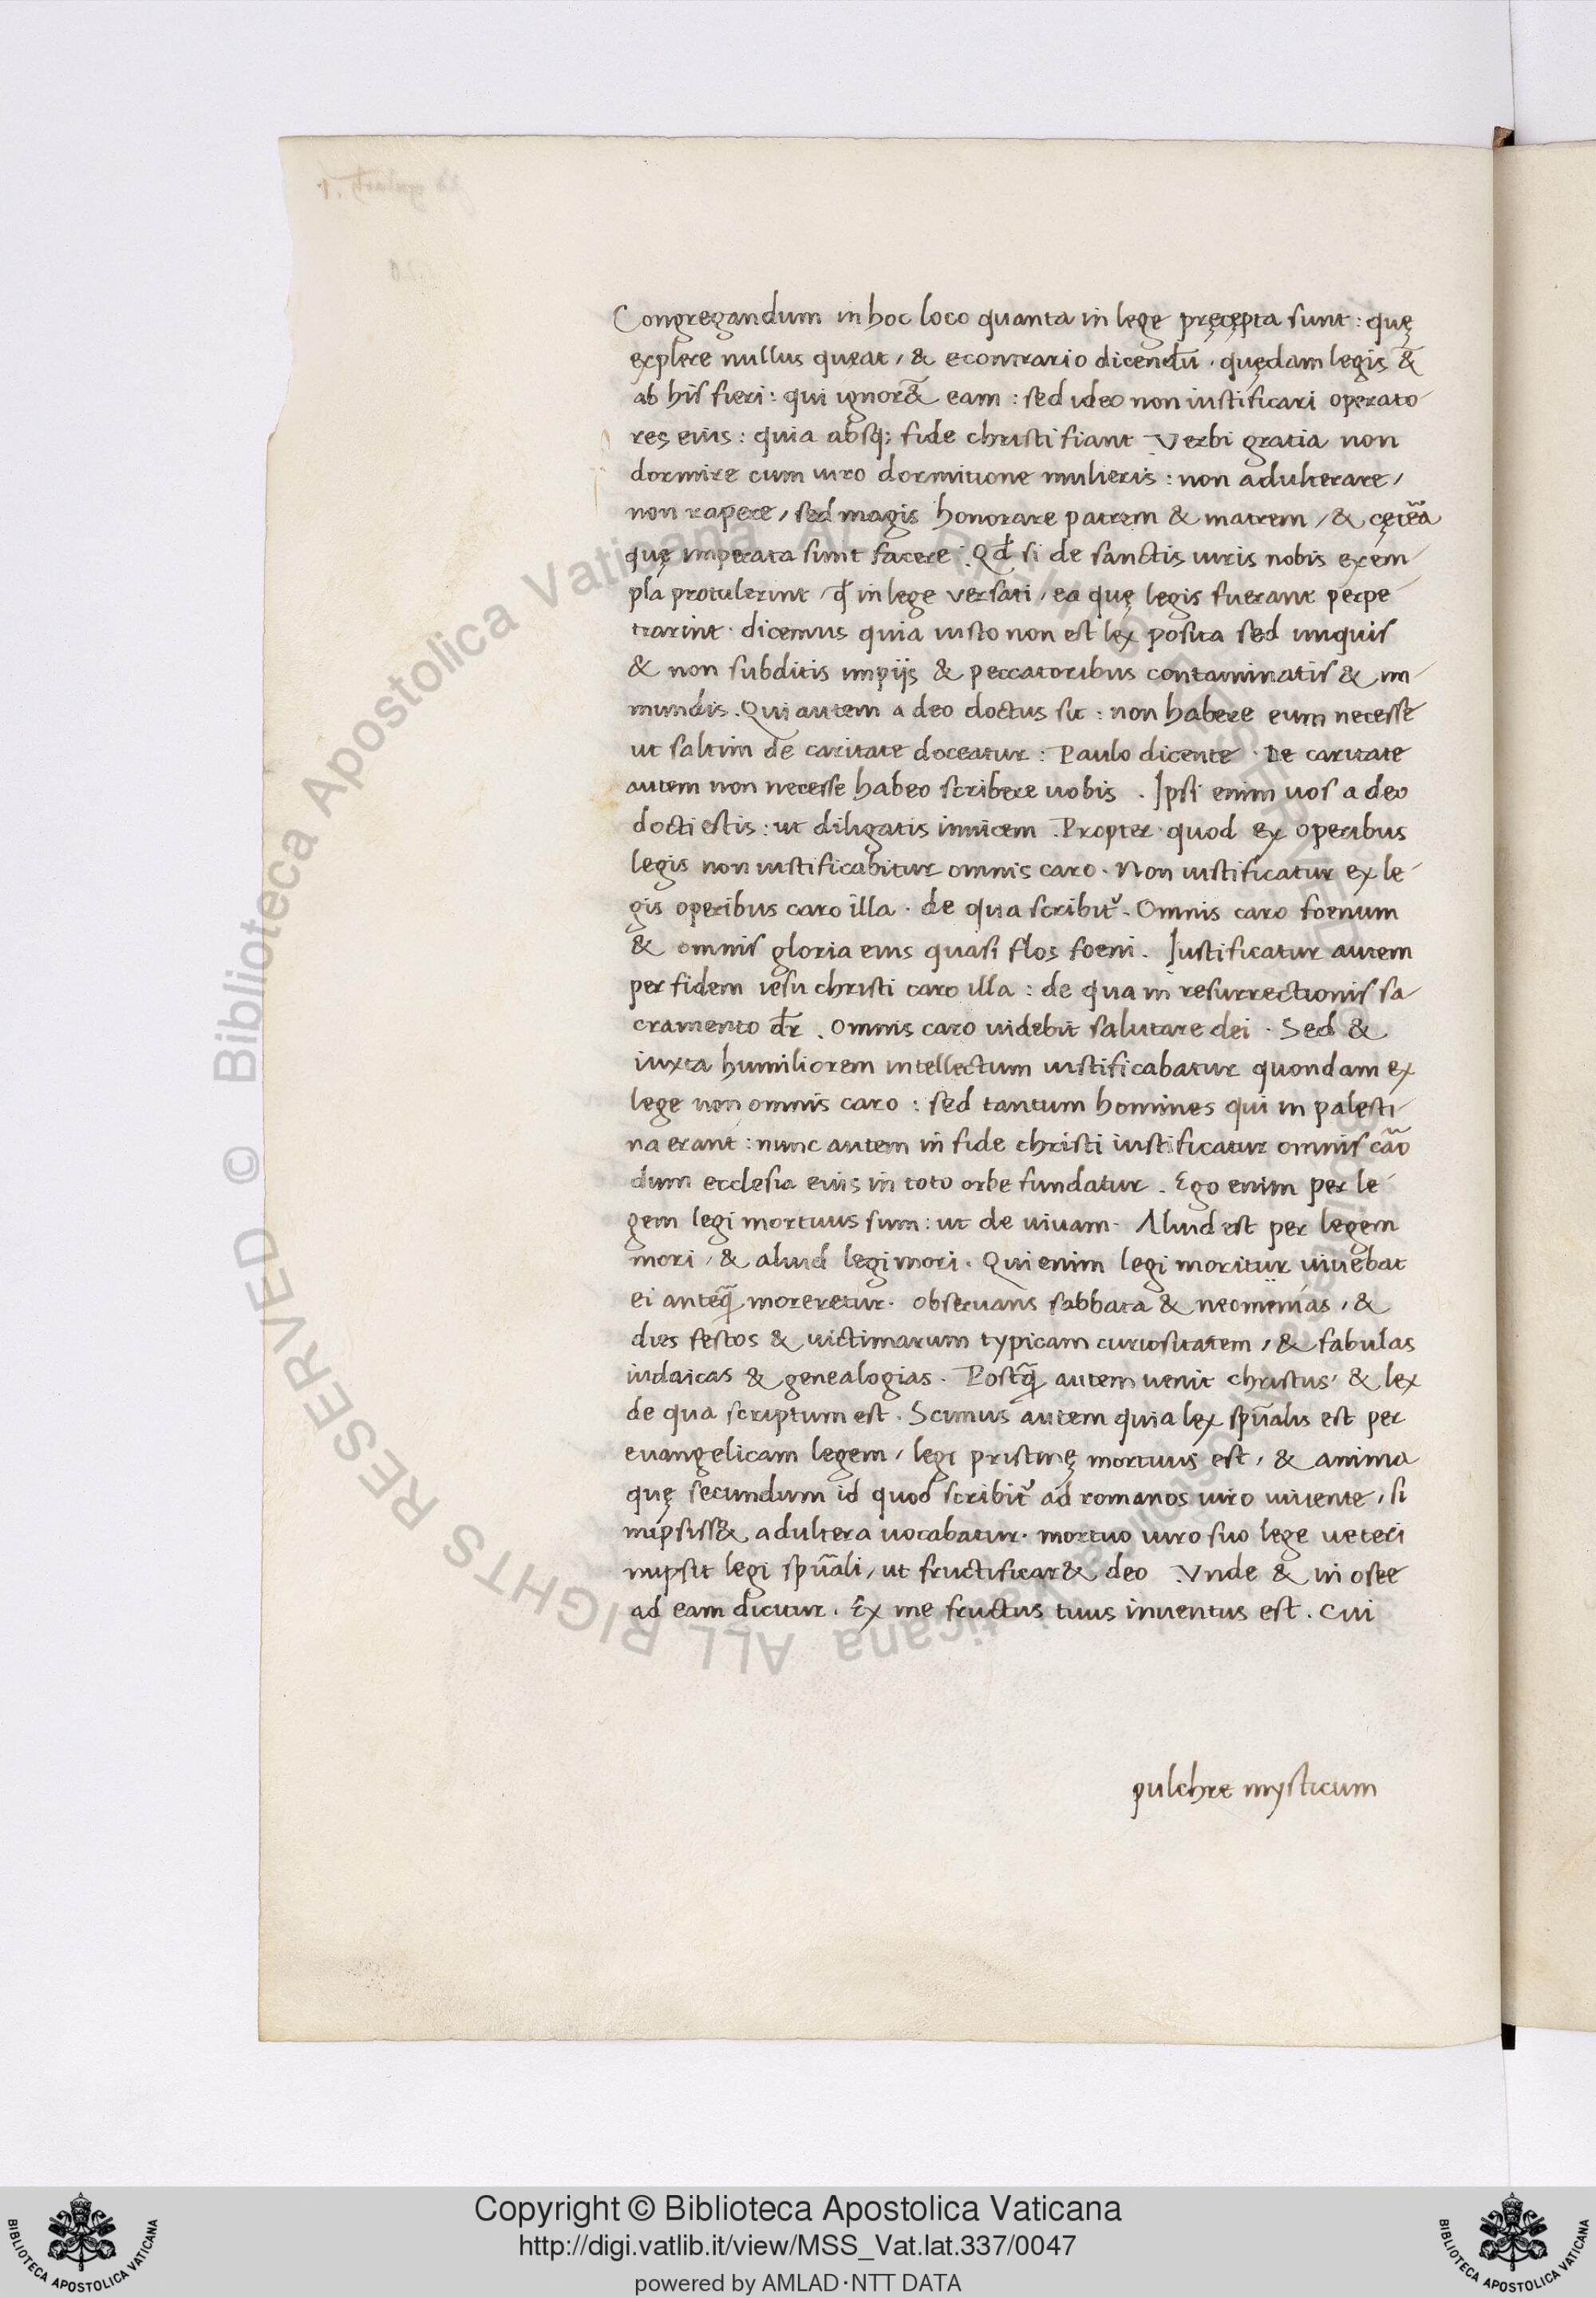 Congregandum in hoc loco quanta in lege pręcepta sunt : quę
explere nullus queat / & econtrario dicendū . quędam legis &̄
ab his fieri : qui ignor&̄ eam : sed ideo non iustificari operato-
res eius : quia absq; fide christi fiant . Verbi gratia non
dormire cum uiro dormitione mulieris : non adulterare /
non rapere / sed magis honorare patrem & matrem / & cęter̃a
quę imperata sunt facere . Qđ si de sanctis uiris nobis exem-
pla protulerint / q̄ in lege versati / ea quę legis fuerant perpe-
trarint . dicemus quia iusto non est lex posita sed iniquis
& non subditis impijs & peccatoribus contaminatis & im-
mundis . Qui autem a deo doctus sit : non habere eum necesse
ut saltim de caritate doceatur : Paulo dicente . De caritate
autem non necesse habeo scribere uobis . Ipsi enim uos a deo
docti estis : ut diligatis inuicem . Propter quod ex operibus
legis non iustificabitur omnis caro . Non iustificatur ex le-
gis operibus caro illa . de qua scribit̃ . Omnis caro foenum
& omnis gloria eius quasi flos foeni . Iustificatur autem
per fidem iesu christi caro illa : de qua in resurrectionis sa-
cramento dr̄ . Omnis caro uidebit salutare dei . Sed &
iuxta humiliorem intellectum iustificabatur quondam ex
lege non omnis caro : sed tantum homines qui in palesti-
na erant : nunc autem in fide christi iustificatur omnis cāo
dum ecclesia eius in toto orbe fundatur . Ego enim per le-
gem legi mortuus sum : ut de uiuam . Aliud est per legem
mori / & aliud legi mori . Qui enim legi moritur uiuebat
ei anteq̃ moreretur . Obseruans sabbata & neomenias / &
dies festos & uictimarum typicam curiositatem / & fabulas
iudaicas & genealogias . Postq̃ autem uenit christus / & lex
de qua scriptum est . Scimus autem quia lex spūalis est per
euangelicam legem / legi pristinę mortuus est / & anima
quę secundum id quod scribit̃ ad romanos uiro uiuente / si
nupsiss& adultera uocabatur . mortuo uiro suo lege ueteri
nupsit legi spūali / ut fructificar& deo . Vnde & in osee
ad eam dicitur . Ex me fructus tuus inuentus est . Cui
pulchre mysticum
© Biblioteca Apostolica Vaticana ALL RIGHTS RESERVED
Copyright © Biblioteca Apostolica Vaticana
http://digi.vatlib.it/view/MSS_Vat.lat.337/0047
powered by AMLAD·NTT DATA
BIBLIOTECA APOSTOLICA VATICANA
BIBLIOTECA APOSTOLICA VATICANA